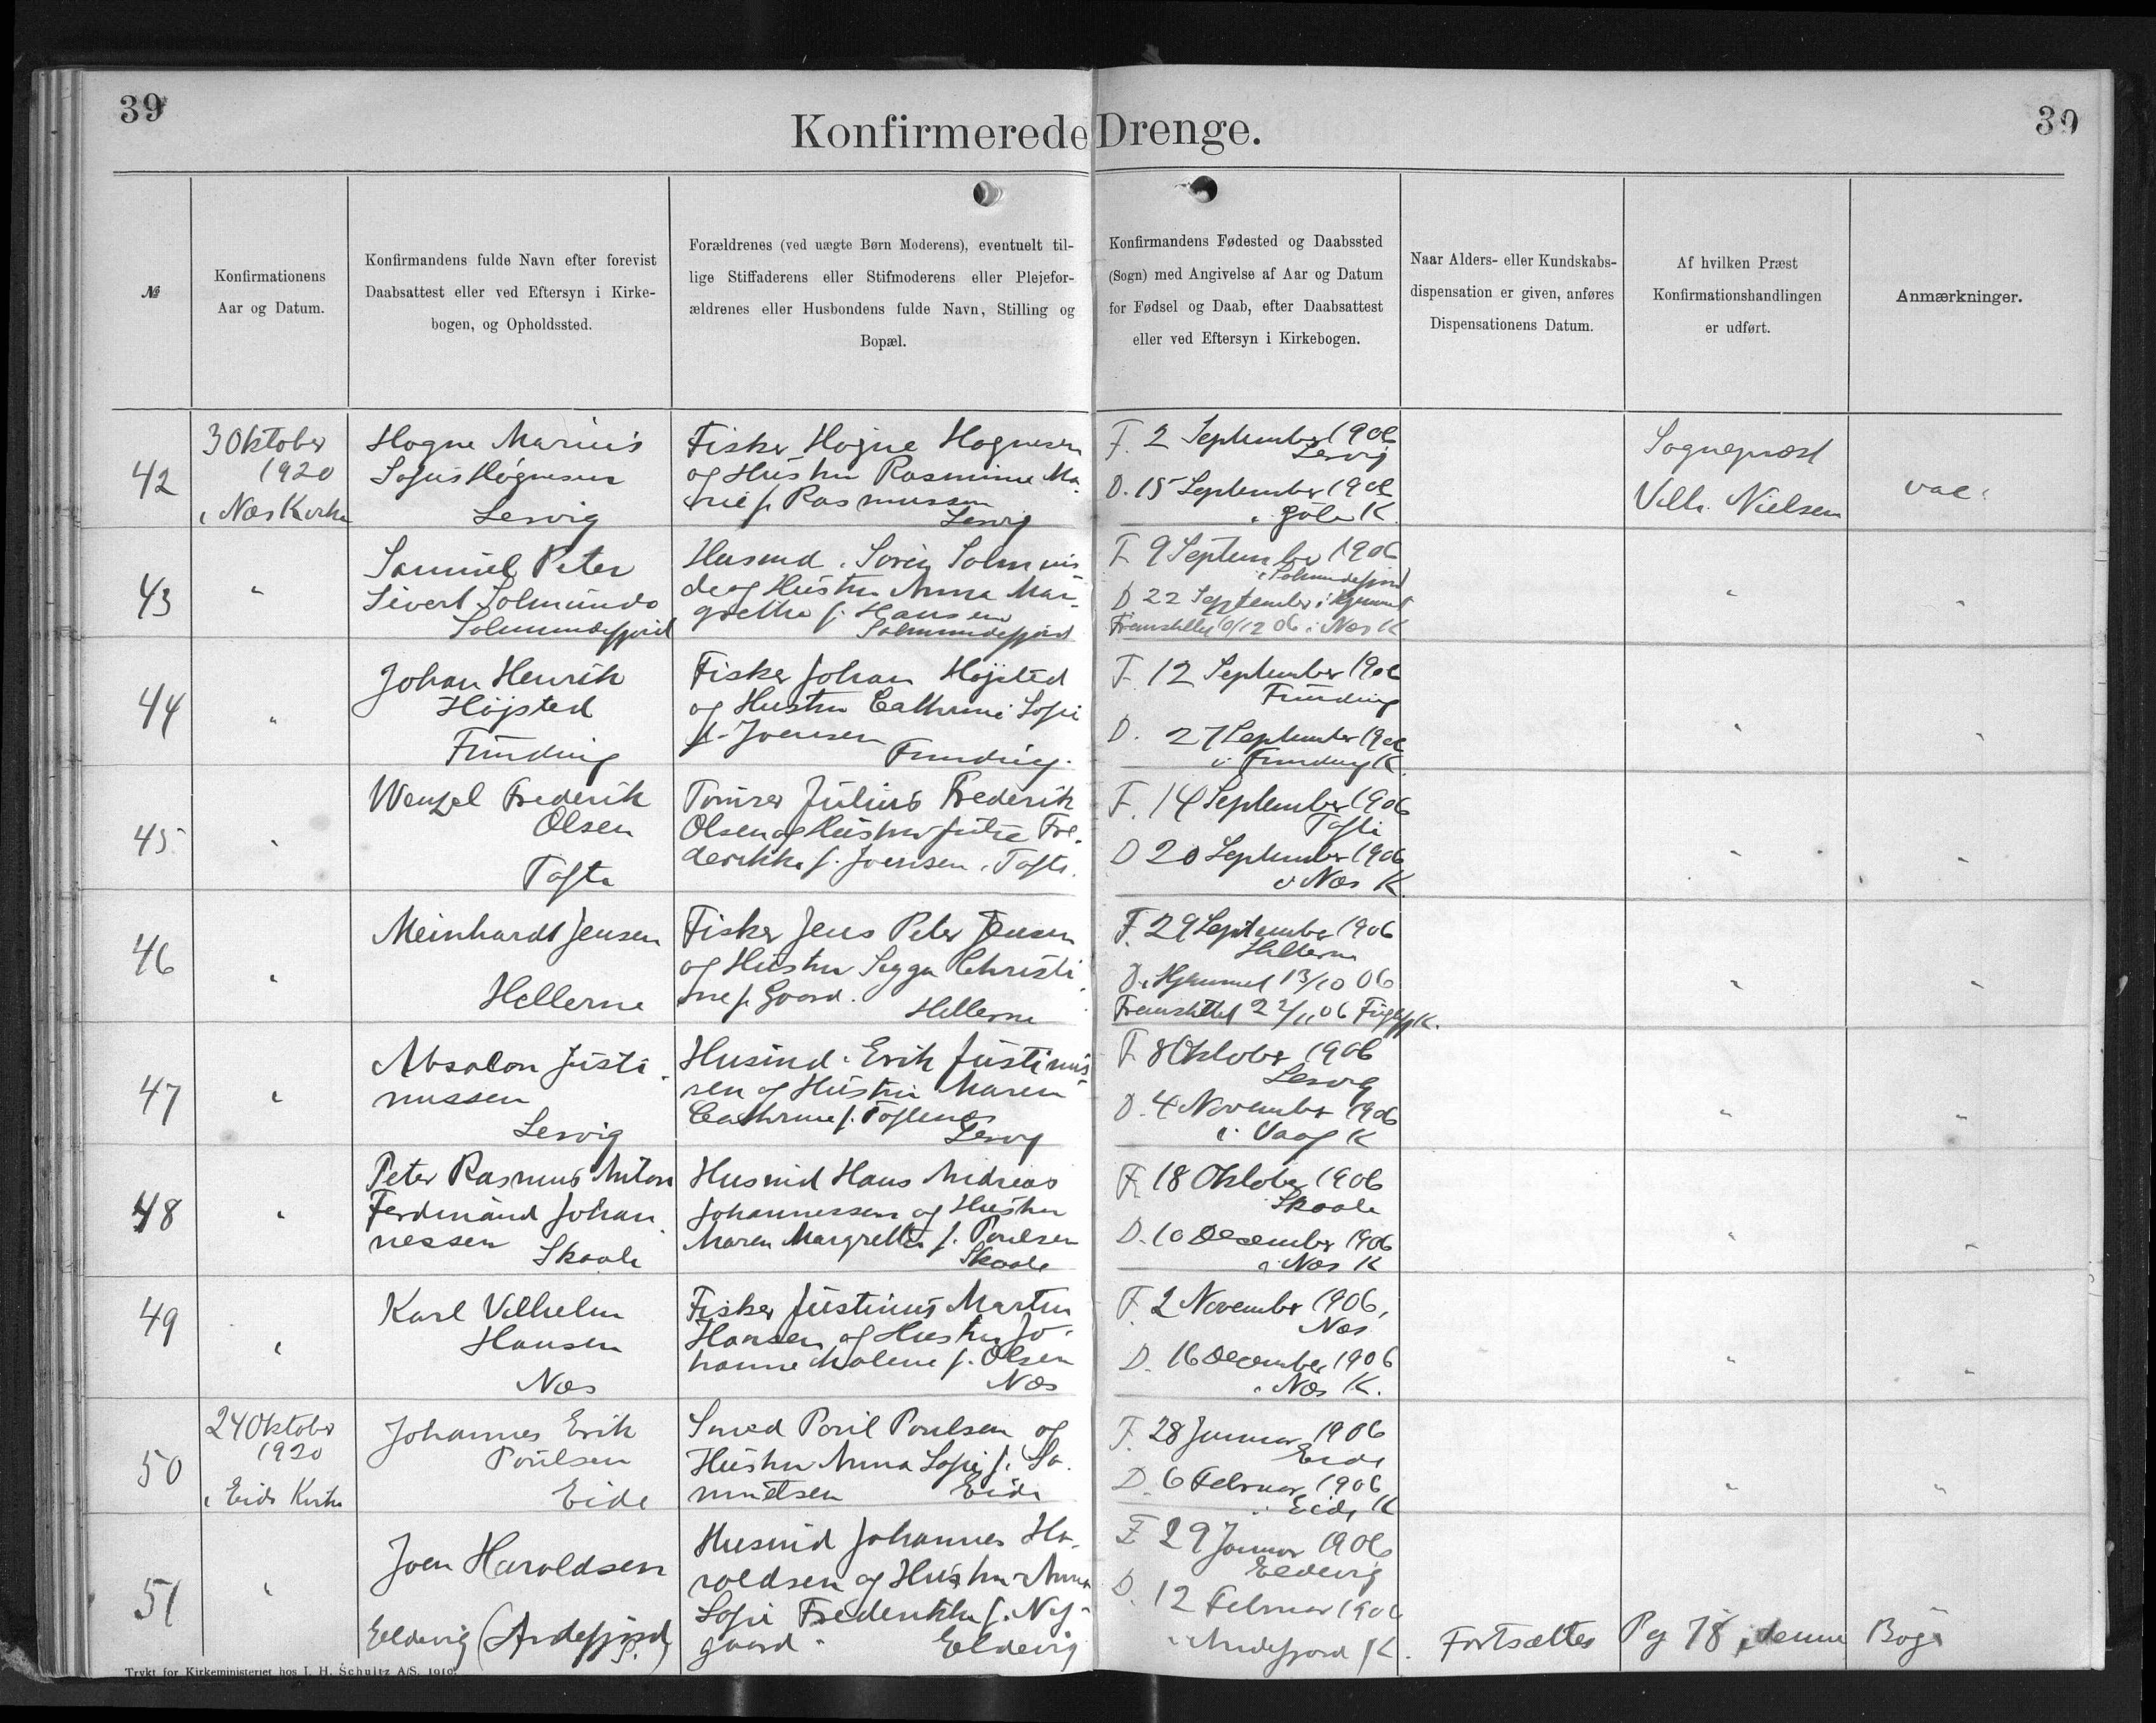 39
39
Konfirmerede Drenge.
№
Konfirmationens
Aar og Datum.
Konfirmandens fulde Navn efter forevist
Daabsattest eller ved Eftersyn i Kirke-
bogen, og Opholdssted.
Forældrenes (ved uægte Børn Moderens), eventuelt til-
lige Stiffaderens eller Stifmoderens eller Plejefor-
ældrenes eller Husbondens fulde Navn, Stilling og
Bopæl.
Konfirmandens Fødested og Daabssted
(Sogn) med Angivelse af Aar og Datum
for Fødsel og Daab, efter Daabsattest
eller ved Eftersyn i Kirkebogen.
Naar Alders- eller Kundskabs-
dispensation er given, anføres
Dispensationens Datum.
Af hvilken Præst
Konfirmationshandlingen
er udført.
Anmærkninger.
42
3 Oktober
1920
i Næs Kirke
Hogne Marius
Sofus Høgnesen
Lervig
Fisker Hogne Hognesen
og Hustru Rasmine Ma-
rie f. Rasmussen
Lervig
F. 2 September 1906
Lervig
D. 15 September 1906
i Gøte K.
Sognepræst
Vilh. Nielsen
vac.
43
"
Samuel Peter
Sivert Solmunde
Solmundefjord
Husmd. Soren Solmun
de og Hustru Anna Mar-
grethe f. Hansen
Solmundefjord
F. 9 September 1906
i Solmundefjord
D 22 September i Hjemmet
Fremstillet 9/12 06 i Næs K
"
"
44
"
Johan Henrik
Højsted
Funding
Fisker Johan Højsted
og Hustru Cathrine Sofie
f. Joensen
Funding.
F. 12 September 1906
Funding
D. 27 September 1906
i Funding K.
"
"
45
"
Wenzel Frederik
Olsen
Tofte
Tømrer Julius Frederik
Olsen og Hustru Julie Fre-
derikke f. Joensen. Tofte.
F. 14 September 1906
Tofte
D 20 September 1906
i Næs K.
"
"
46
"
Meinhardt Jensen
Hellerne
Fisker Jens Peter Jensen
og Hustru Sigga Christi-
ne f. Gaard.
Hellerne
F. 29 September 1906
Hellerne
D. i Hjemmet 13/10 06
Fremstillet 22/11 06 Fuglefj K.
"
"
47
"
Absalon Justi-
nussen
Lervig
Husmd. Erik Justinus
sen og Hustru Maren
Cathrine f. Toftenæs
Lervig
F. 8 Oktober 1906
Lervig
D. 4 November 1906
i Vaag K
"
"
48
"
Peter Rasmus Anton
Ferdinand Johan-
nessen
Skaale
Husmd Hans Andreas
Johannessen og Hustru
Maren Margrethe f. Poulsen
Skaale
F. 18 Oktober 1906
Skaale
D. 10 December 1906
i Næs K
"
"
49
"
Karl Vilhelm
Hansen
Næs
Fisker Justinus Martin
Hansen og Hustru Jo-
hanne Malene f. Olsen
Næs
F. 2 November 1906.
Næs
D. 16 December 1906
i Næs K.
"
"
50
24 Oktober
1920
i Eide Kirke
Johannes Erik
Poulsen
Eide
Smed Poul Poulsen og
Hustru Anna Sofie f. Sa-
muelsen
Eide
F. 28 Januar 1906
Eide
D. 6 Februar 1906
i Eide K
"
"
51
"
Joen Haroldsen
Eldevig (Andefjord)
Husmd Johannes Ha-
roldsen og Hustru Anna
Sofie Frederikke f. Ny-
gaard.
Eldevig
F 29 Januar 1906
Eldevig
D. 12 Februar 1906
i Andefjord K.
Fortsættes Pg 78 i denne Bog
Trykt for Kirkeministeriet hos J. H. Schultz A/S. 1919.